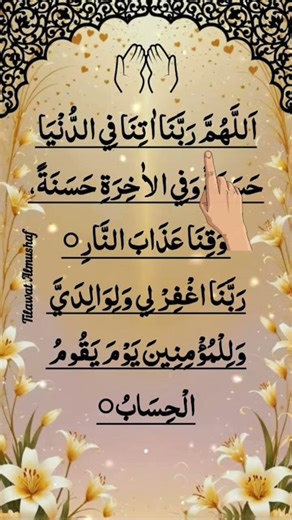 اَللَّهُمَّ رَبَّنَا اٰتِنَا فِي الدُّنْيَا
وَفِي الْاٰخِرَةِ حَسَنَةً،
وَقِنَا عَذَابَ النَّارِ○
رَبَّنَا اغْفِرْ لِي وَلِوَالِدَيَّ
وَلِلْمُؤْمِنِينَ يَوْمَ يَقُومُ
الْحِسَابُ○
Tilawat Almushaf